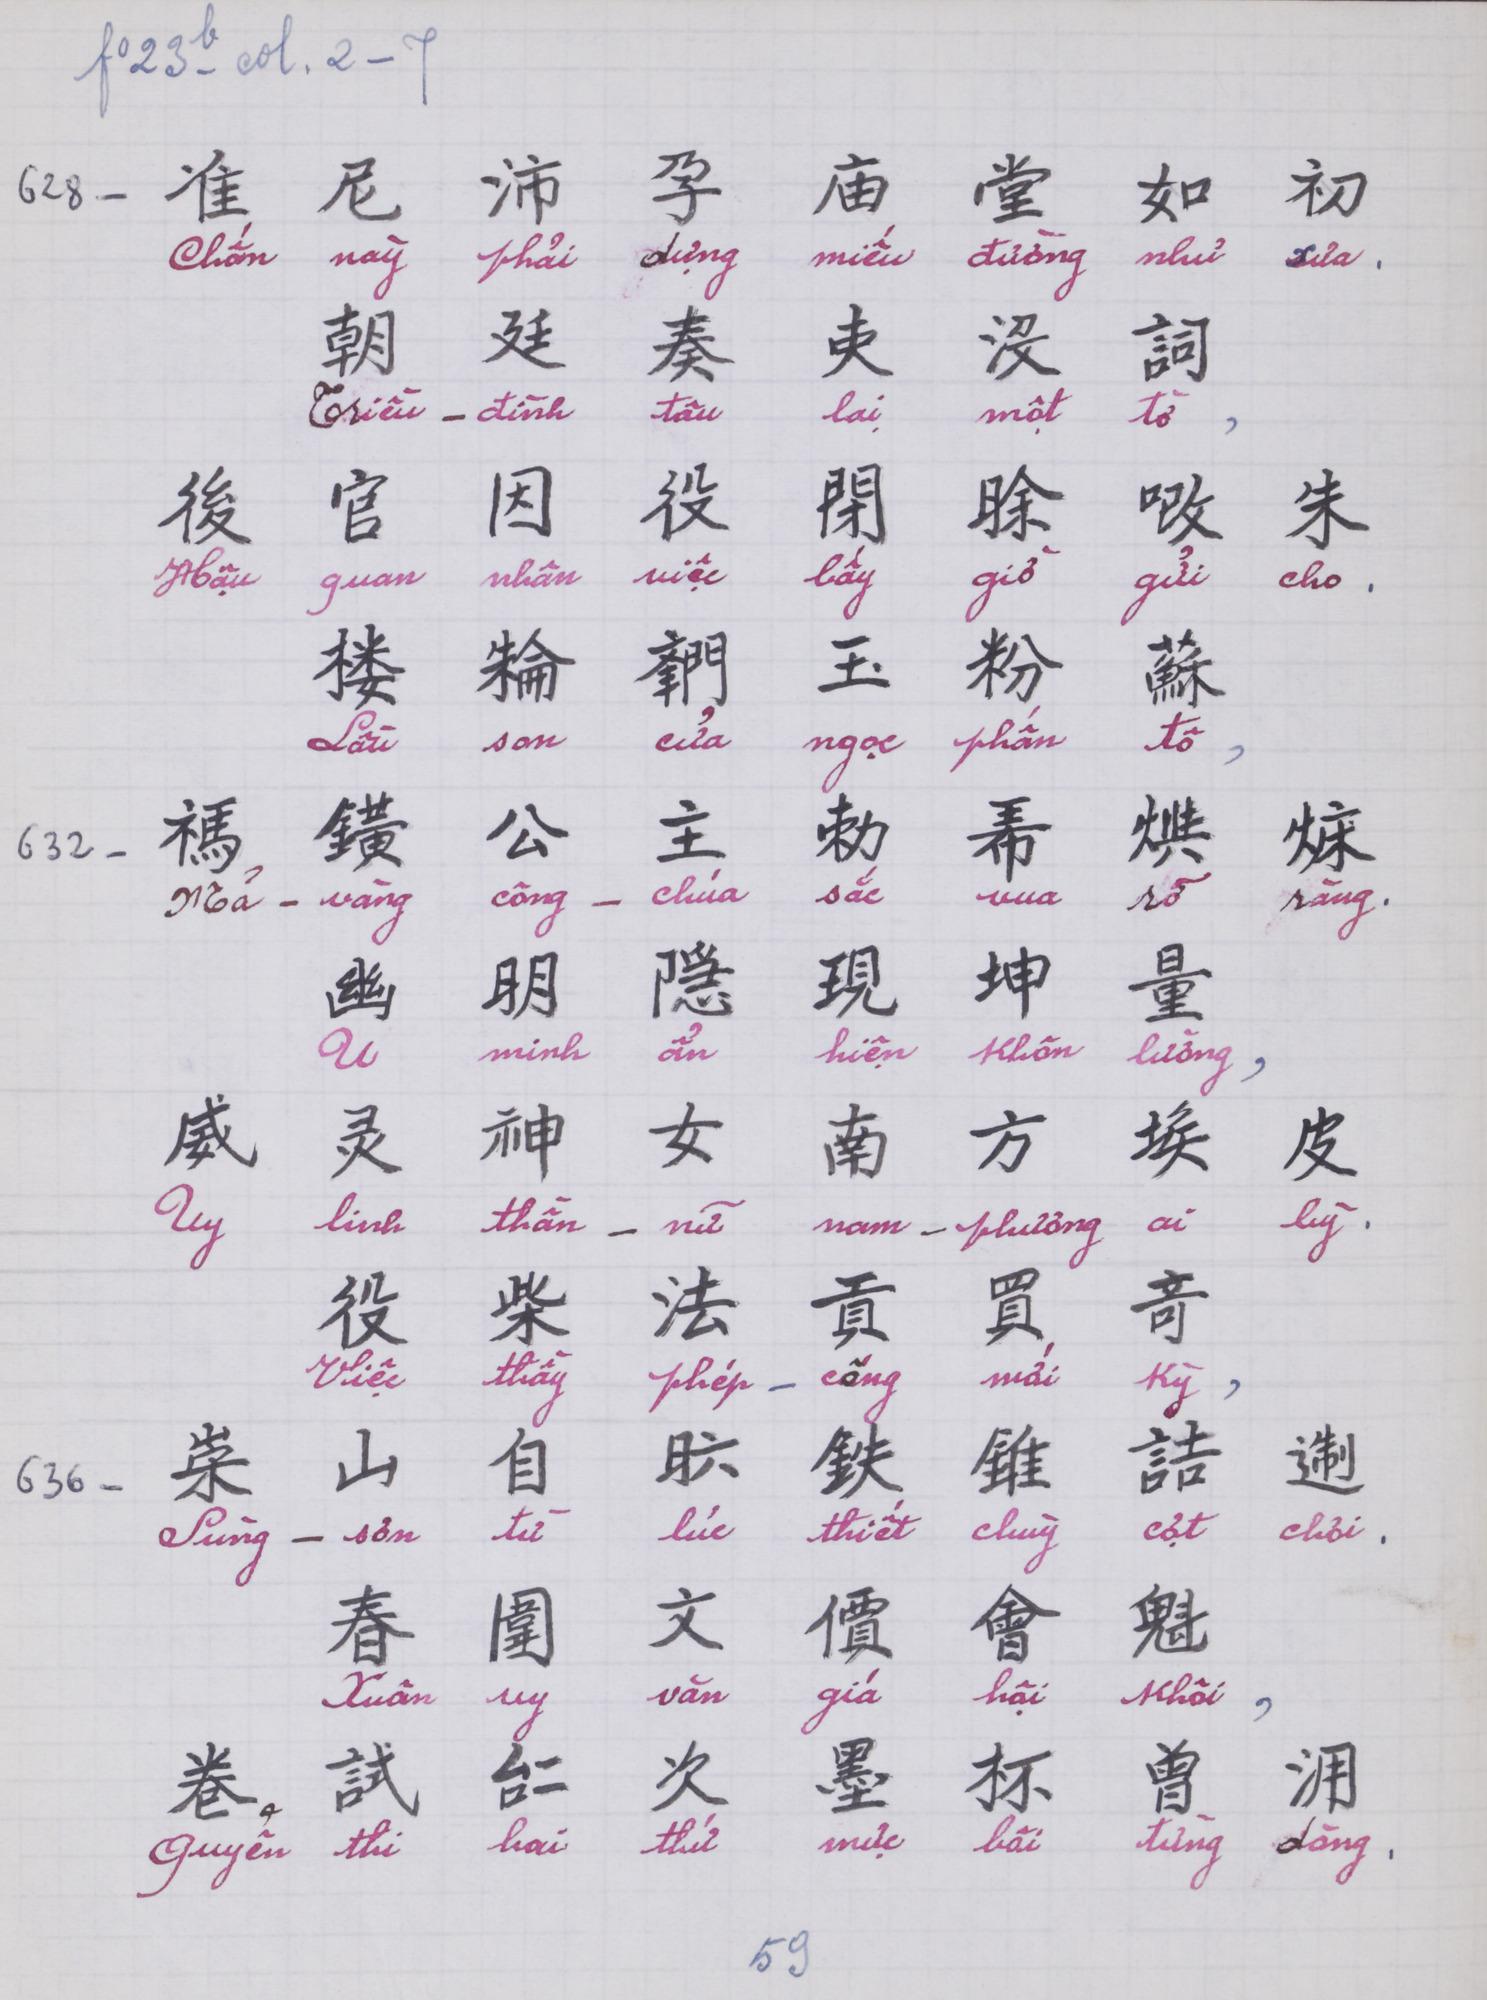 fº 23b col. 2-7
628- 准 尼 沛 孕 庙 堂 如 初
Chốn này phải dựng miếu đường như xưa.
朝 廷 奏 吏 没 詞
Triều - đình tâu lại một tờ,
後 官 因 役 閉 睩 𠳚 朱
Hậu quan nhân việc bấy giờ gửi cho.
楼 玉 粉 蘇
Lầu son cửa ngọc phấn tô,
632- 禡 鐄 公 主 勅 燤
Mả - vàng công - chúa sắc vua rõ ràng.
幽 明 隠 現 坤 量
U minh ẩn hiện khôn lường,
威 灵 神 女 南 方 埃 皮
Uy linh thần - nữ nam - phương ai bì.
役 柴 法 貢 買 竒
Việc thầy phép - cống mới kỳ,
636- 崇 山 自 𣅶 鉄 錐 詰 
Sùng - sơn từ lúc thiết chùy cợt chơi.
春 圍 文 價 會 魁
Xuân uy văn giá hội khôi,
卷 試 𠄩 次 墨 杯 曾 泪
Quyển thi hai thứ mực bôi từng dòng.
59